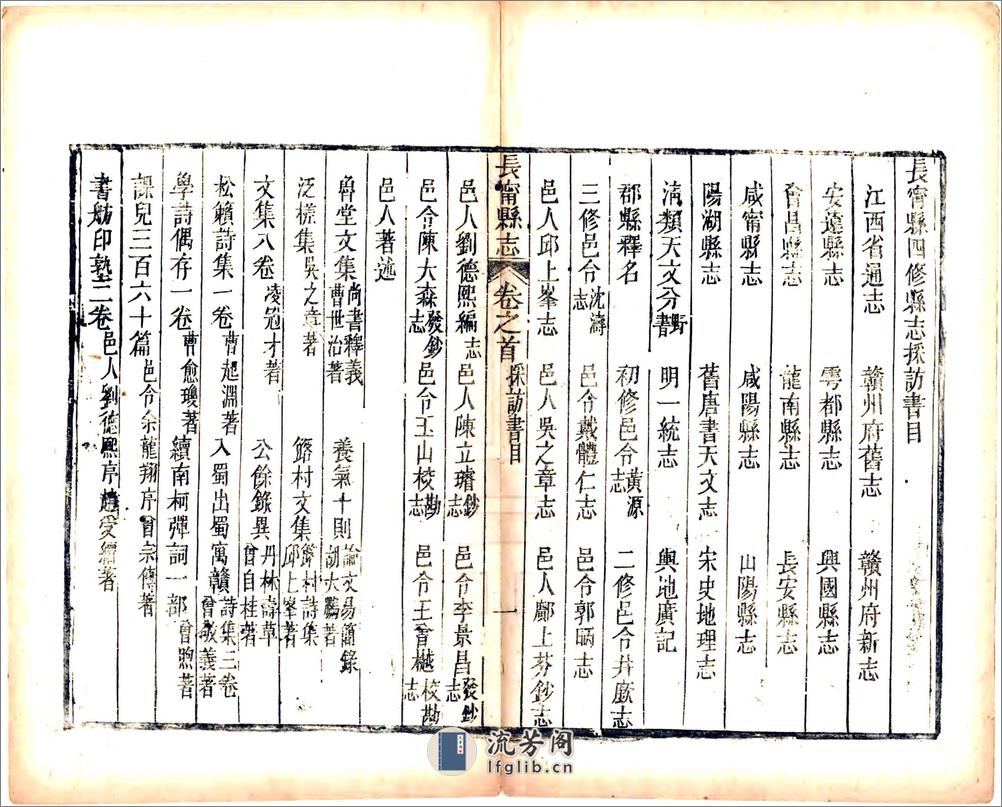 長甯縣四修縣志採訪書目
江西省通志　贛州府舊志　贛州府新志
安遠縣志　雩都縣志　興國縣志
會昌縣志　龍南縣志　長安縣志
咸甯縣志　咸陽縣志　山陽縣志
陽湖縣志　舊唐書天文志　宋史地理志
清類天文分野書　明一統志　輿地廣記
郡縣釋名　初修邑令黃源志　二修邑令井厫志
三修邑令沈濤志　邑令戴體仁志　邑令郭晒志
邑人邱上峯志　邑人吳之章志　邑人鄺上芬鈔志
長甯縣志　卷之首　採訪書目　一
邑人劉德熙編志　邑人陳立瑢鈔志　邑令李景昌發鈔志
邑令陳大森發鈔志　邑令王山校勘志　邑令王曾樾校勘志
邑人著述
魯堂文集　尚書釋義　曹世治著　養氣十則　論文易簡錄　胡大鵬著
泛槎集吳之章著　簵村文集　簵村詩集　邱上峯著
文集八卷　凌冠才著　公餘錄異　丹林詩草　曾自桂著
松籟詩集一卷　曹起淵著　入蜀出蜀寓贛詩集三卷　曾敏義著
學詩偶存一卷　曹愈瓊著　續南柯彈詞一部　曾煦著
課兒三百六十篇　邑令余龍翔序　曾宗傳著
書舫印塾二卷　邑人劉德熙序　趙受續著
流芳阁
lfglib.cn